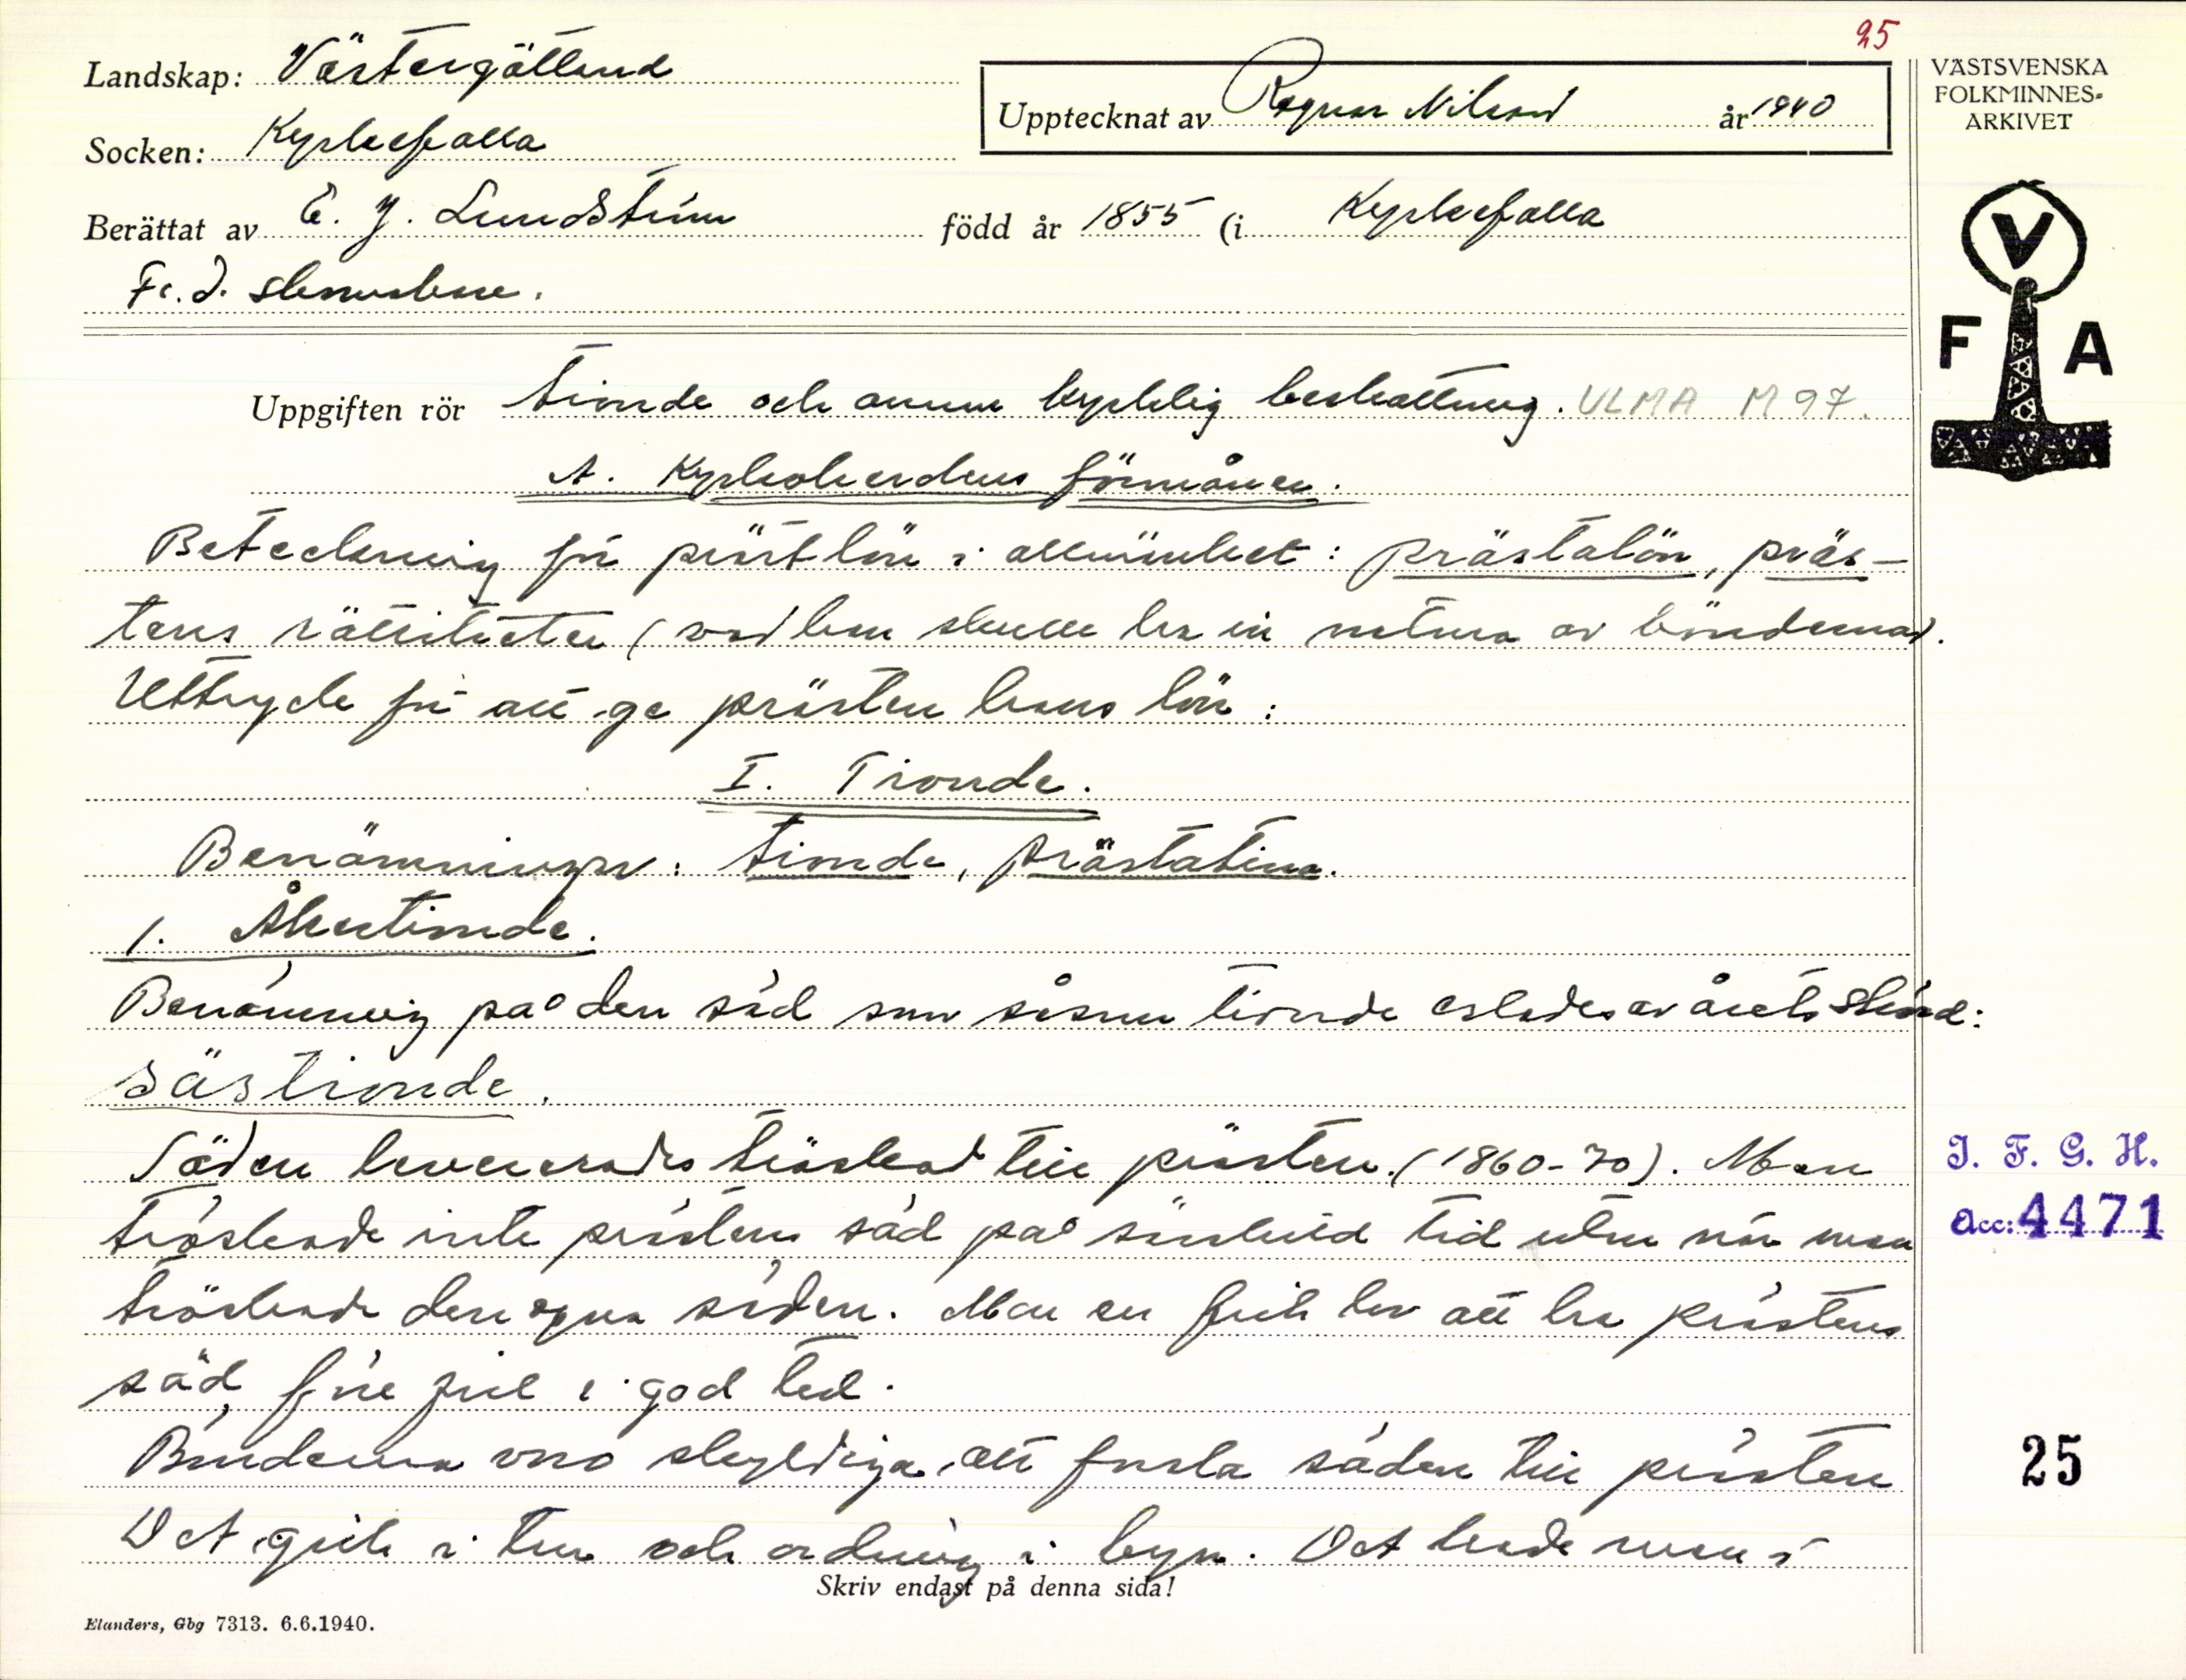 25
Landskap: Västergötland
Upptecknat av Ragnar Nilsson år 1940
Socken: Kyrkefalla
Berättat av E. J. Lundström född år 1855 (i Kyrkefalla
F.d. skomakare.
VÄSTSVENSKA
FOLKMINNES-
ARKIVET
V
F A
Uppgiften rör Tionde och annan kyrklig beskattning. ULMA M 97.
A. Kyrkoherdens förmåner.
Beteckning för prästlön i allmänhet: prästalön, präs-
tens rättiheter (vad han skulle ha in natura av bönderna).
Uttryck för att ge prästen hans lön:
I. Tionde.
Benämningar: tionde, prästatina.
1. Åkertionde.
Benämning på den säd som såsom tionde erlades av årets skörd:
sästionde.
Säden levererades tröskad till prästen. (1860-70). Man
tröskade inte prästens säd på särskild tid utan när man
tröskade den egna säden. Man fick lov att ha prästens
säd före jul i god tid.
Bönderna voro skyldiga att forsla säden till prästen
Det gick i tur och ordning i byn. Det hade man i
I. F. G. H.
Acc: 4471
25
Skriv endast på denna sida!
Elanders, Gbg 7313. 6.6.1940.